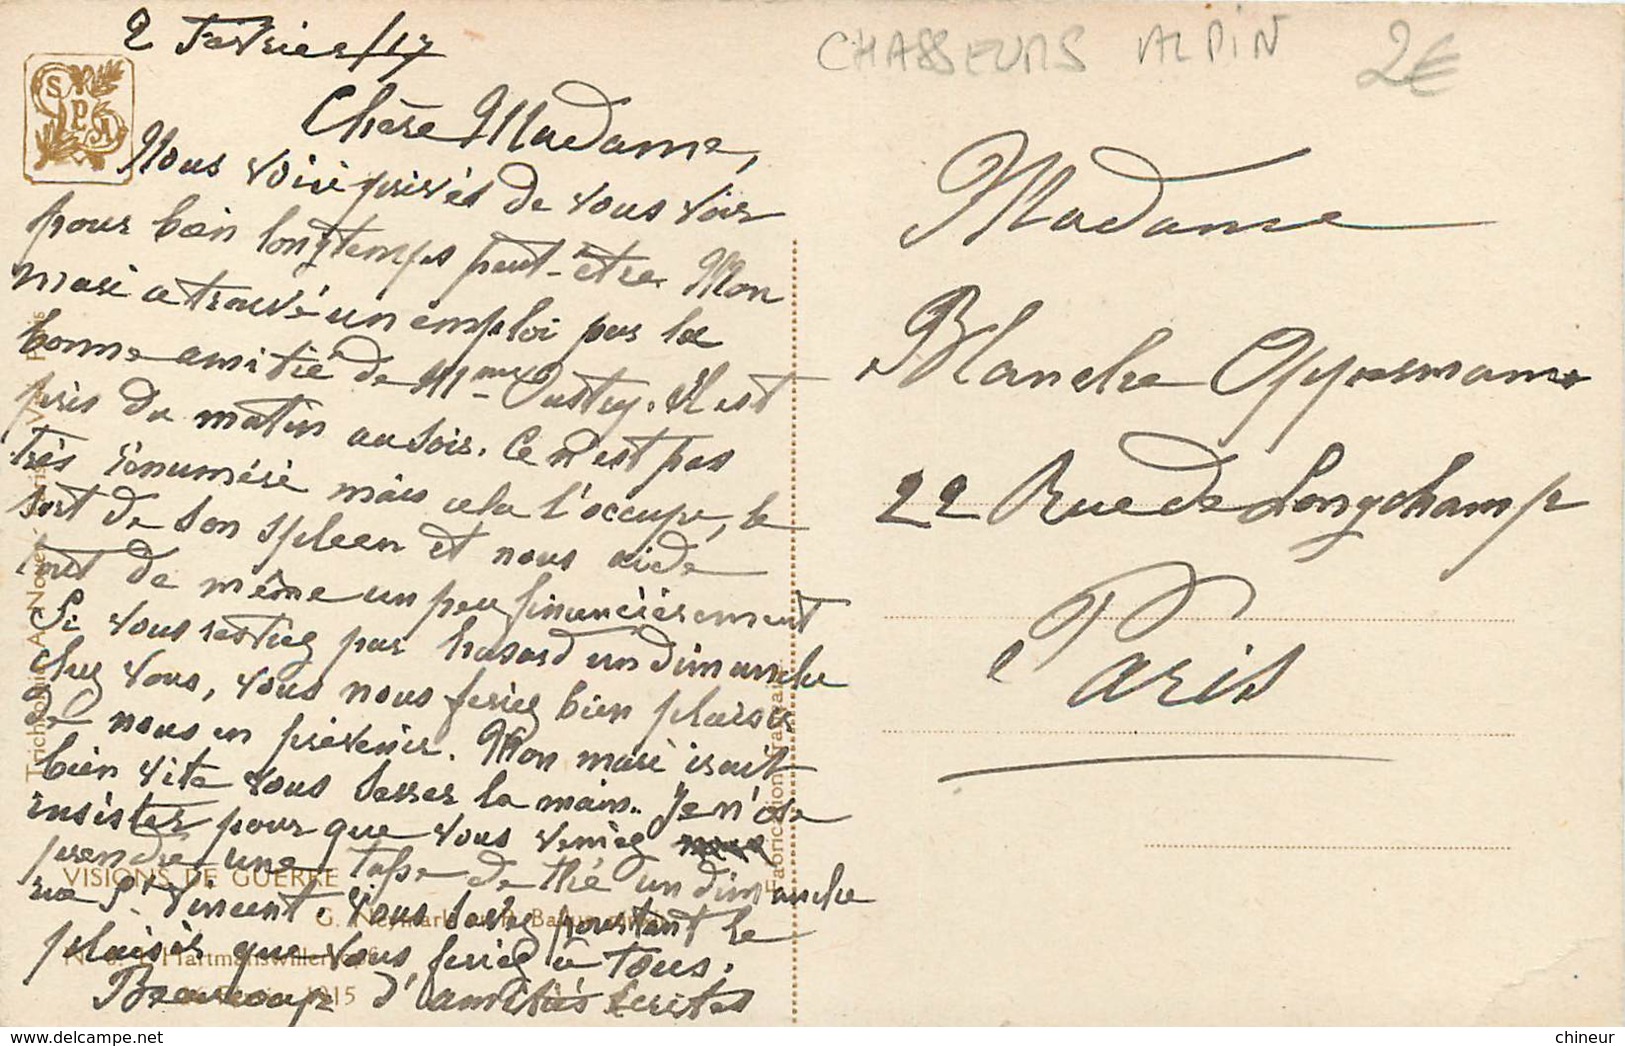 2 Février/17
CHASSEURS ALPIN 2€
SPA
Chère Madame,
Nous voici privés de vous voir
pour bien longtemps peut-être. Mon
mari a trouvé un emploi par la
bonne amitié de Mme Oustry. Il est
pris du matin au soir. Ce n'est pas
très rénuméré mais cela l'occupe, le
sort de son spleen et nous aide
tout de même un peu financièrement
Si vous restiez par hasard un dimanche
chez vous, vous nous feriez bien plaisir
de nous en prévenir. Mon mari irait
bien vite vous serrer la main. Je n'ose
insister pour que vous veniez
prendre une tasse de thé un dimanche
rue St Vincent. Vous savez pourtant le
plaisir que vous feriez à tous.
Beaucoup d'amitiés
VISIONS DE GUERRE
1915
Fabrication française
Madame
Blanche Oppermann
22 Rue de Longchamp
Paris
chineur